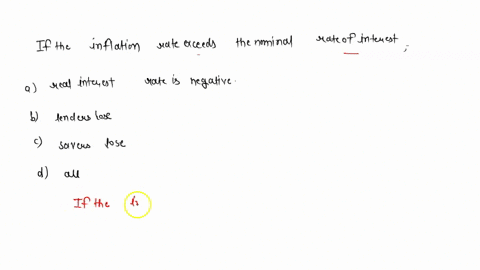 If the inflation rate exceeds the nominal rate of interest,
a) real interest rate is negative.
b) lenders lose
c) savers lose
d) all
If the